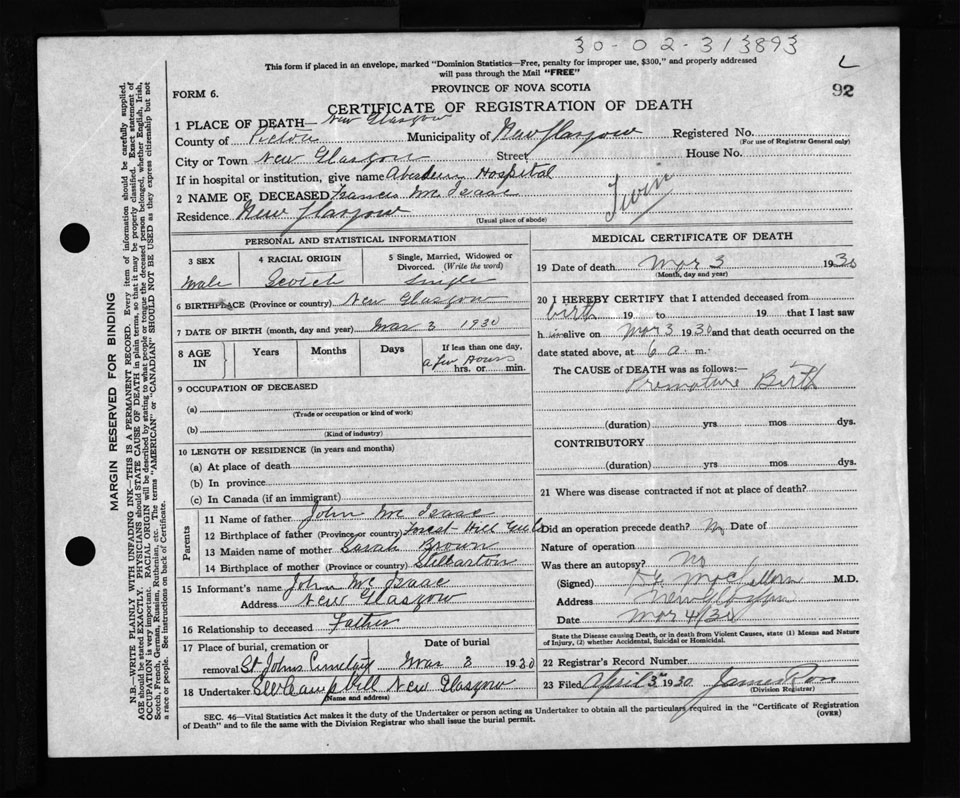 30-02-313893
This form if placed in an envelope, marked "Dominion Statistics—Free, penalty for improper use, $300," and properly addressed
will pass through the Mail "FREE"
L
FORM 6.
PROVINCE OF NOVA SCOTIA
92
CERTIFICATE OF REGISTRATION OF DEATH
1 PLACE OF DEATH— New Glasgow
County of Pictou Municipality of New Glasgow Registered No.
(For use of Registrar General only)
City or Town New Glasgow Street House No.
If in hospital or institution, give name Aberdeen Hospital
2 NAME OF DECEASED Francis Mc Isaac
Twin
Residence New Glasgow
(Usual place of abode)
PERSONAL AND STATISTICAL INFORMATION
3 SEX 4 RACIAL ORIGIN 5 Single, Married, Widowed or
Divorced. (Write the word)
Male Scotch Single
6 BIRTHPLACE (Province or country) New Glasgow
7 DATE OF BIRTH (month, day and year) Mar 3 1930
8 AGE IN Years Months Days If less than one day,
a few Hours
hrs. or min.
9 OCCUPATION OF DECEASED
(a)
(Trade or occupation or kind of work)
(b)
(Kind of industry)
10 LENGTH OF RESIDENCE (in years and months)
(a) At place of death
(b) In province
(c) In Canada (if an immigrant)
Parents
11 Name of father John Mc Isaac
12 Birthplace of father (Province or country) Forest Hill
13 Maiden name of mother Sarah Brown
14 Birthplace of mother (Province or country) Stellarton
15 Informant's name John Mc Isaac
Address New Glasgow
16 Relationship to deceased Father
17 Place of burial, cremation or Date of burial
removal St Johns Mar 3 1930
18 Undertaker Campbell New Glasgow
(Name and address)
MEDICAL CERTIFICATE OF DEATH
19 Date of death Mar 3 1930
(Month, day and year)
20 I HEREBY CERTIFY that I attended deceased from
birth 19 to 19 that I last saw
h im alive on Mar 3 1930 and that death occurred on the
date stated above, at 6 a. m.
The CAUSE of DEATH was as follows:—
Premature Birth
(duration) yrs mos dys.
CONTRIBUTORY
(duration) yrs mos dys.
21 Where was disease contracted if not at place of death?
Did an operation precede death? No Date of
Nature of operation
Was there an autopsy? No
(Signed) M.D.
Address New Glasgow
Date Mar 4/30
State the Disease causing Death, or in death from Violent Causes, state (1) Means and Nature
of Injury, (2) whether Accidental, Suicidal or Homicidal.
22 Registrar's Record Number
23 Filed April 3rd 1930 James Ross
(Division Registrar)
SEC. 46—Vital Statistics Act makes it the duty of the Undertaker or person acting as Undertaker to obtain all the particulars required in the "Certificate of Registration
of Death" and to file the same with the Division Registrar who shall issue the burial permit.
(OVER)
MARGIN RESERVED FOR BINDING
N.B.—WRITE PLAINLY WITH UNFADING INK—THIS IS A PERMANENT RECORD. Every item of information should be carefully supplied.
AGE should be stated EXACTLY. PHYSICIANS should STATE CAUSE OF DEATH in plain terms, so that it may be properly classified. Exact statement of
OCCUPATION is very important. RACIAL ORIGIN will be described by stating to what people or tongue the deceased person belonged, whether English, Irish,
Scotch, French, German, Russian, Ruthenian, etc. The terms "AMERICAN" or "CANADIAN" SHOULD NOT BE USED as they express citizenship but not
a race or people. See instructions on back of Certificate.